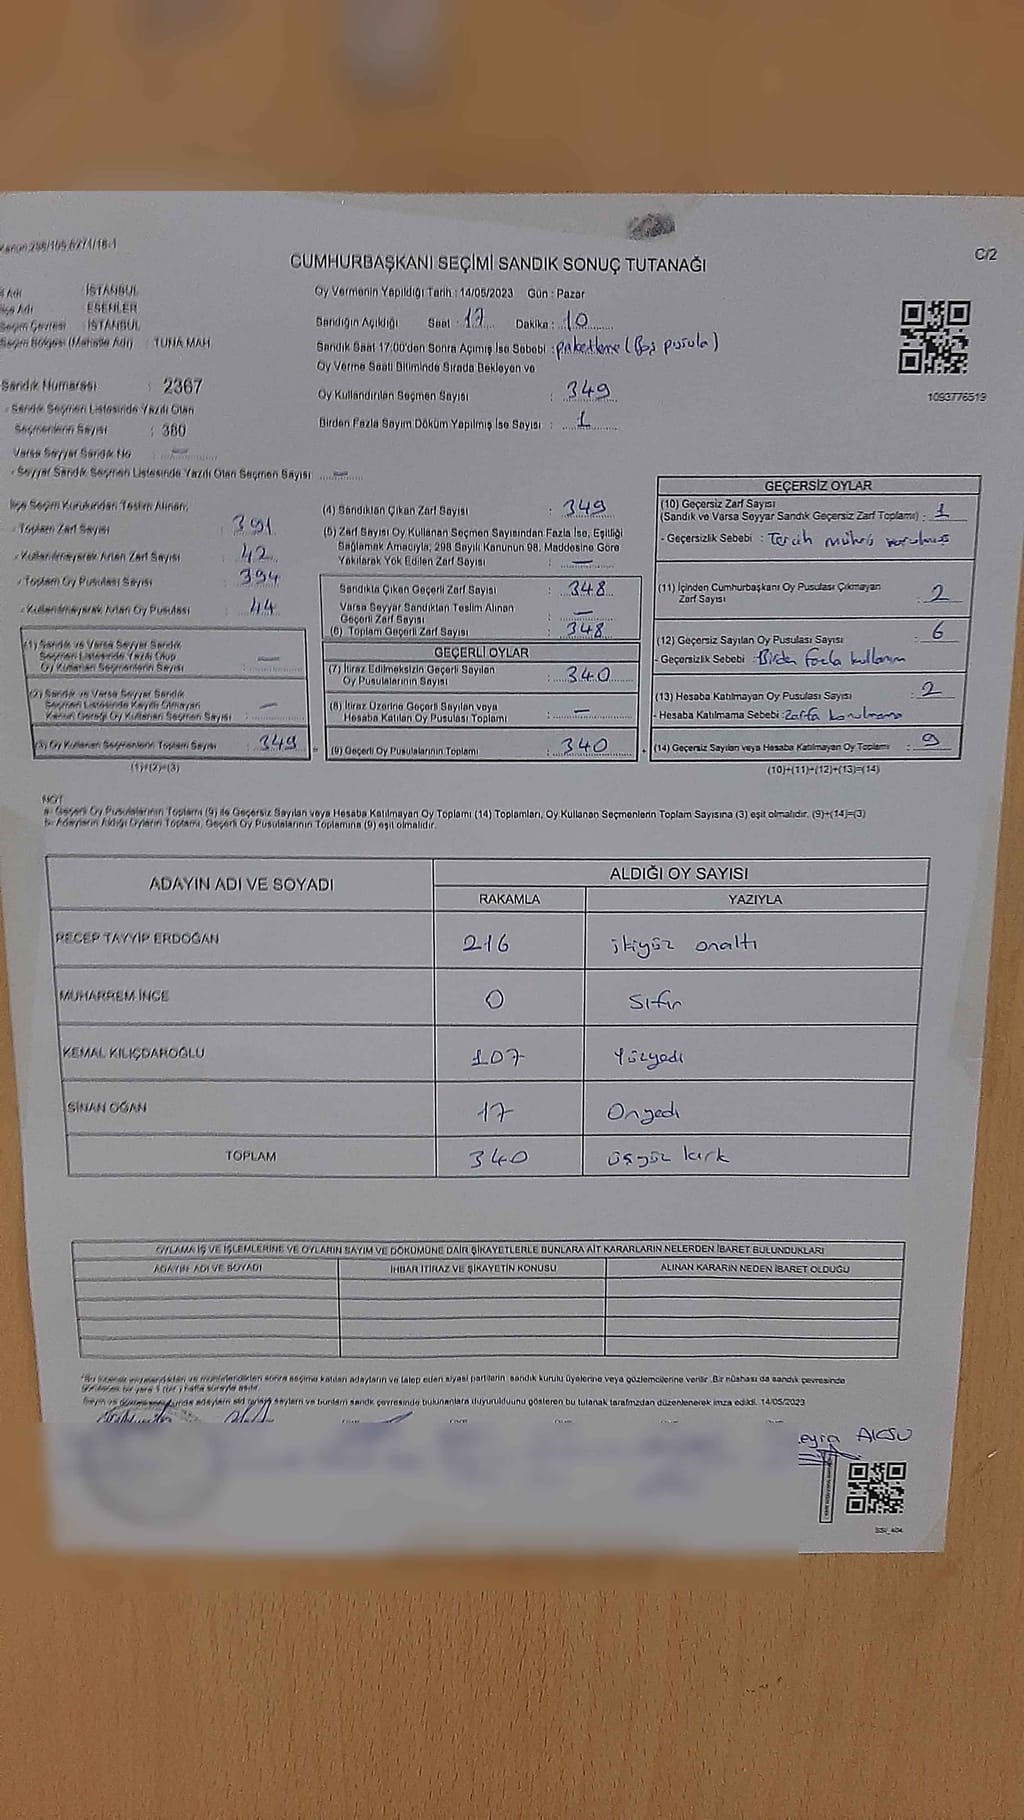 Kanun:298/105,6271/18-1
C/2
CUMHURBAŞKANI SEÇİMİ SANDIK SONUÇ TUTANAĞI
İl Adı : İSTANBUL
İlçe Adı : ESENLER
Seçim Çevresi : İSTANBUL
Seçim Bölgesi (Mahalle Adı) : TUNA MAH
Sandık Numarası : 2367
- Sandık Seçmen Listesinde Yazılı Olan
Seçmenlerin Sayısı : 380
Varsa Seyyar Sandık No : —
- Seyyar Sandık Seçmen Listesinde Yazılı Olan Seçmen Sayısı : —
Oy Vermenin Yapıldığı Tarih : 14/05/2023 Gün : Pazar
Sandığın Açıldığı Saat : 17 Dakika : 10
Sandık Saat 17:00'den Sonra Açılmış İse Sebebi : paketleme (boş pusula)
Oy Verme Saati Bitiminde Sırada Bekleyen ve
Oy Kullandırılan Seçmen Sayısı : 349
Birden Fazla Sayım Döküm Yapılmış İse Sayısı : 1
1093776519
İlçe Seçim Kurulundan Teslim Alınan;
- Toplam Zarf Sayısı : 391
- Kullanılmayarak Artan Zarf Sayısı : 42
- Toplam Oy Pusulası Sayısı : 394
- Kullanılmayarak Artan Oy Pusulası : 44
(1) Sandık ve Varsa Seyyar Sandık
Seçmen Listesinde Yazılı Olup
Oy Kullanan Seçmenlerin Sayısı : —
(2) Sandık ve Varsa Seyyar Sandık
Seçmen Listesinde Kayıtlı Olmayan
Kanun Gereği Oy Kullanan Seçmen Sayısı : —
(3) Oy Kullanan Seçmenlerin Toplam Sayısı : 349
(1)+(2)=(3)
(4) Sandıktan Çıkan Zarf Sayısı : 349
(5) Zarf Sayısı Oy Kullanan Seçmen Sayısından Fazla İse, Eşitliği
Sağlamak Amacıyla; 298 Sayılı Kanunun 98. Maddesine Göre
Yakılarak Yok Edilen Zarf Sayısı : —
Sandıkta Çıkan Geçerli Zarf Sayısı : 348
Varsa Seyyar Sandıktan Teslim Alınan
Geçerli Zarf Sayısı : —
(6) Toplam Geçerli Zarf Sayısı : 348
GEÇERLİ OYLAR
(7) İtiraz Edilmeksizin Geçerli Sayılan
Oy Pusulalarının Sayısı : 340
(8) İtiraz Üzerine Geçerli Sayılan veya
Hesaba Katılan Oy Pusulası Toplamı : —
(9) Geçerli Oy Pusulalarının Toplamı : 340
GEÇERSİZ OYLAR
(10) Geçersiz Zarf Sayısı
(Sandık ve Varsa Seyyar Sandık Geçersiz Zarf Toplamı) : 1
- Geçersizlik Sebebi : Tercih mührü vurulmuş
(11) İçinden Cumhurbaşkanı Oy Pusulası Çıkmayan
Zarf Sayısı : 2
(12) Geçersiz Sayılan Oy Pusulası Sayısı : 6
- Geçersizlik Sebebi : Birden fazla kullanım
(13) Hesaba Katılmayan Oy Pusulası Sayısı : 2
- Hesaba Katılmama Sebebi : Zarfa konulmama
(14) Geçersiz Sayılan veya Hesaba Katılmayan Oy Toplamı : 9
(10)+(11)+(12)+(13)=(14)
NOT
a- Geçerli Oy Pusulalarının Toplamı (9) ile Geçersiz Sayılan veya Hesaba Katılmayan Oy Toplamı (14) Toplamları, Oy Kullanan Seçmenlerin Toplam Sayısına (3) eşit olmalıdır. (9)+(14)=(3)
b- Adayların Aldığı Oyların Toplamı, Geçerli Oy Pusulalarının Toplamına (9) eşit olmalıdır.
ADAYIN ADI VE SOYADI ALDIĞI OY SAYISI
RAKAMLA YAZIYLA
RECEP TAYYİP ERDOĞAN 216 ikiyüz onaltı
MUHARREM İNCE 0 Sıfır
KEMAL KILIÇDAROĞLU 107 Yüzyedi
SİNAN OĞAN 17 Onyedi
TOPLAM 340 üçyüz kırk
OYLAMA İŞ VE İŞLEMLERİNE VE OYLARIN SAYIM VE DÖKÜMÜNE DAİR ŞİKAYETLERLE BUNLARA AİT KARARLARIN NELERDEN İBARET BULUNDUKLARI
ADAYIN ADI VE SOYADI İHBAR İTİRAZ VE ŞİKAYETİN KONUSU ALINAN KARARIN NEDEN İBARET OLDUĞU
sonra seçime katılan adayların ve talep eden siyasi partilerin sandık kurulu üyelerine veya gözlemcilerine verilir. Bir nüshası da sandık çevresinde
bir yere 1 (bir) hafta süreyle asılır.
sandık çevresinde bulunanlara duyurulduunu gösteren bu tutanak tarafımızdan düzenlenerek imza edildi. 14/05/2023
eyra AKSU
SSİ_404